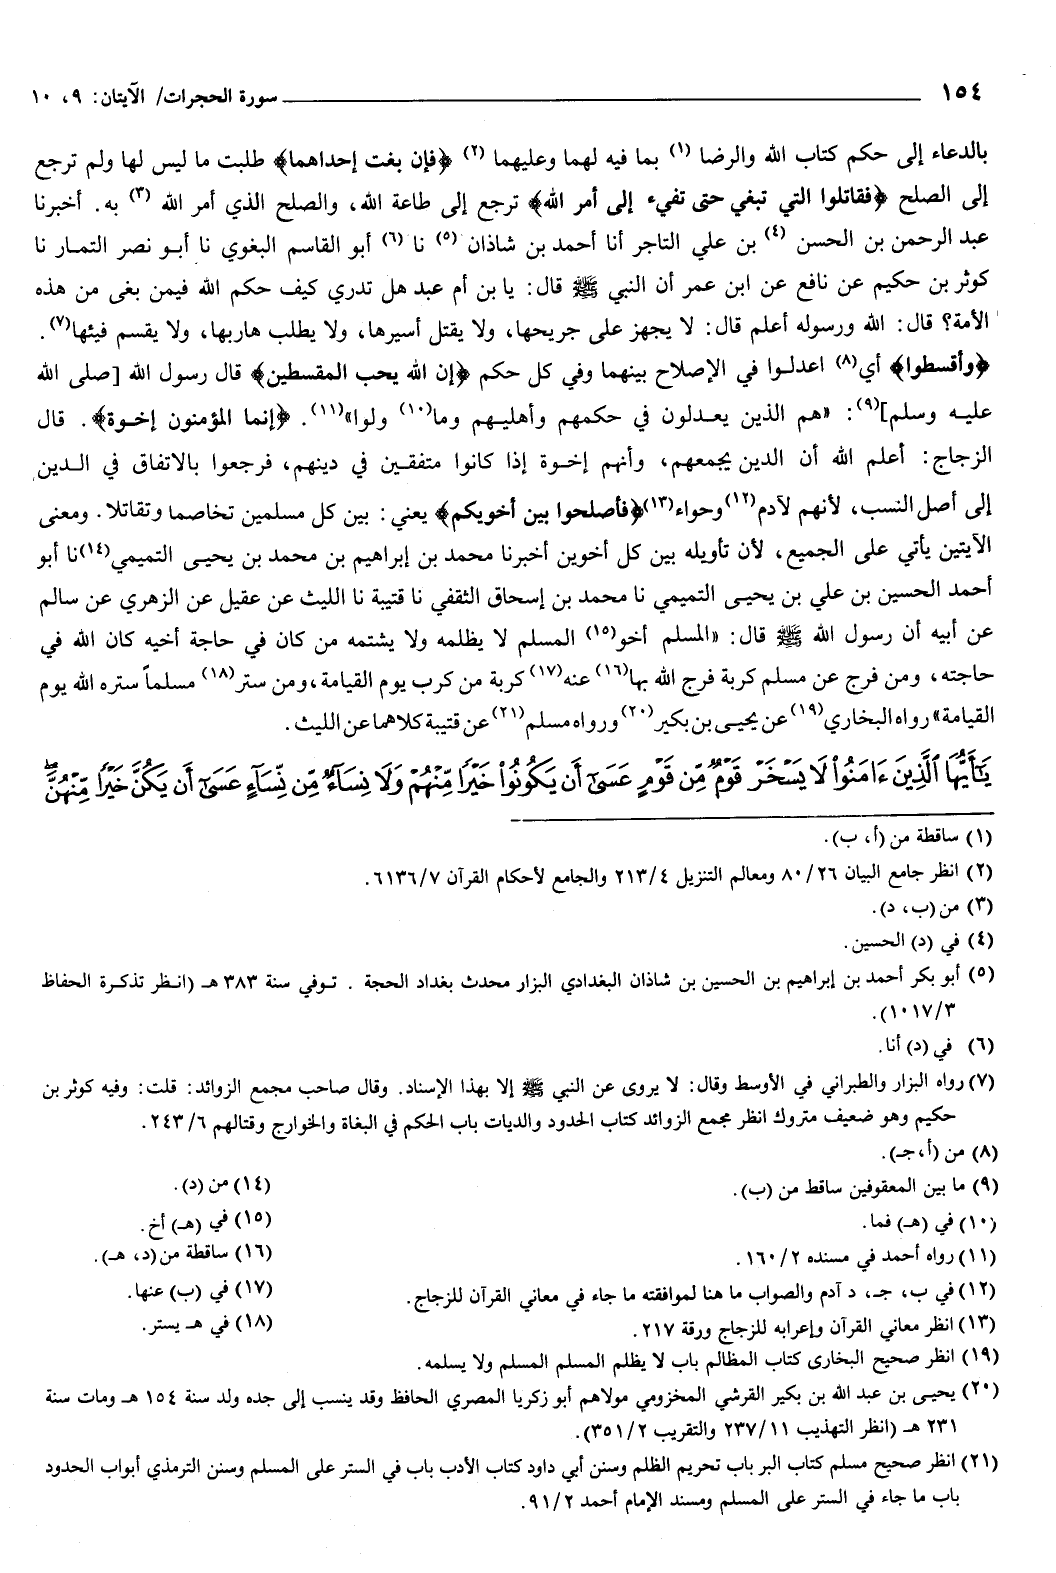 ١٥٤ سورة الحجرات/ الآيتان: ٩، ١٠
بالدعاء إلى حكم كتاب الله والرضا (١) بما فيه لهما وعليهما (٢) ﴿فإن بغت إحداهما﴾ طلبت ما ليس لها ولم ترجع
إلى الصلح ﴿فقاتلوا التي تبغي حتى تفيء إلى أمر الله﴾ ترجع إلى طاعة الله، والصلح الذي أمر الله (٣) به. أخبرنا
عبد الرحمن بن الحسن (٤) بن علي التاجر أنا أحمد بن شاذان (٥) نا (٦) أبو القاسم البغوي نا أبو نصر التمار نا
كوثر بن حكيم عن نافع عن ابن عمر أن النبي ﷺ قال: يا بن أم عبد هل تدري كيف حكم الله فيمن بغى من هذه
الأمة؟ قال: الله ورسوله أعلم قال: لا يجهز على جريحها، ولا يقتل أسيرها، ولا يطلب هاربها، ولا يقسم فيئها(٧).
﴿وأقسطوا﴾ أي(٨) اعدلوا في الإصلاح بينهما وفي كل حكم ﴿إن الله يحب المقسطين﴾ قال رسول الله [صلى الله
عليه وسلم](٩): «هم الذين يعدلون في حكمهم وأهليهم وما(١٠) ولوا»(١١). ﴿إنما المؤمنون إخوة﴾. قال
الزجاج: أعلم الله أن الدين يجمعهم، وأنهم إخوة إذا كانوا متفقين في دينهم، فرجعوا بالاتفاق في الدين
إلى أصل النسب، لأنهم لآدم(١٢) وحواء(١٣) ﴿فأصلحوا بين أخويكم﴾ يعني: بين كل مسلمين تخاصما وتقاتلا. ومعنى
الآيتين يأتي على الجميع، لأن تأويله بين كل أخوين أخبرنا محمد بن إبراهيم بن محمد بن يحيى التميمي(١٤) نا أبو
أحمد الحسين بن علي بن يحيى التميمي نا محمد بن إسحاق الثقفي نا قتيبة نا الليث عن عقيل عن الزهري عن سالم
عن أبيه أن رسول الله ﷺ قال: «المسلم أخو(١٥) المسلم لا يظلمه ولا يشتمه من كان في حاجة أخيه كان الله في
حاجته، ومن فرج عن مسلم كربة فرج الله بها(١٦) عنه(١٧) كربة من كرب يوم القيامة، ومن ستر(١٨) مسلماً ستره الله يوم
القيامة» رواه البخاري(١٩) عن يحيى بن بكير(٢٠) ورواه مسلم(٢١) عن قتيبة كلاهما عن الليث.
يَٰٓأَيُّهَا ٱلَّذِينَ ءَامَنُوا۟ لَا يَسْخَرْ قَوْمٌ مِّن قَوْمٍ عَسَىٰٓ أَن يَكُونُوا۟ خَيْرًا مِّنْهُمْ وَلَا نِسَآءٌ مِّن نِّسَآءٍ عَسَىٰٓ أَن يَكُنَّ خَيْرًا مِّنْهُنَّ ۖ
(١) ساقطة من (أ، ب).
(٢) انظر جامع البيان ٨٠/٢٦ ومعالم التنزيل ٢١٣/٤ والجامع لأحكام القرآن ٦١٣٦/٧.
(٣) من (ب، د).
(٤) في (د) الحسين.
(٥) أبو بكر أحمد بن إبراهيم بن الحسين بن شاذان البغدادي البزار محدث بغداد الحجة . توفي سنة ٣٨٣ هـ (انظر تذكرة الحفاظ
١٠١٧/٣).
(٦) في (د) أنا.
(٧) رواه البزار والطبراني في الأوسط وقال: لا يروى عن النبي ﷺ إلا بهذا الإسناد. وقال صاحب مجمع الزوائد: قلت: وفيه كوثر بن
حكيم وهو ضعيف متروك انظر مجمع الزوائد كتاب الحدود والديات باب الحكم في البغاة والخوارج وقتالهم ٢٤٣/٦.
(٨) من (أ، جـ).
(٩) ما بين المعقوفين ساقط من (ب).
(١٠) في (هـ) فما.
(١١) رواه أحمد في مسنده ١٦٠/٢.
(١٢) في ب، جـ، د آدم والصواب ما هنا لموافقته ما جاء في معاني القرآن للزجاج.
(١٣) انظر معاني القرآن وإعرابه للزجاج ورقة ٢١٧.
(١٤) من (د).
(١٥) في (هـ) أخ.
(١٦) ساقطة من (د، هـ).
(١٧) في (ب) عنها.
(١٨) في هـ يستر.
(١٩) انظر صحيح البخارى كتاب المظالم باب لا يظلم المسلم المسلم ولا يسلمه.
(٢٠) يحيى بن عبد الله بن بكير القرشي المخزومي مولاهم أبو زكريا المصري الحافظ وقد ينسب إلى جده ولد سنة ١٥٤ هـ ومات سنة
٢٣١ هـ (انظر التهذيب ٢٣٧/١١ والتقريب ٣٥١/٢).
(٢١) انظر صحيح مسلم كتاب البر باب تحريم الظلم وسنن أبي داود كتاب الأدب باب في الستر على المسلم وسنن الترمذي أبواب الحدود
باب ما جاء في الستر على المسلم ومسند الإمام أحمد ٩١/٢.